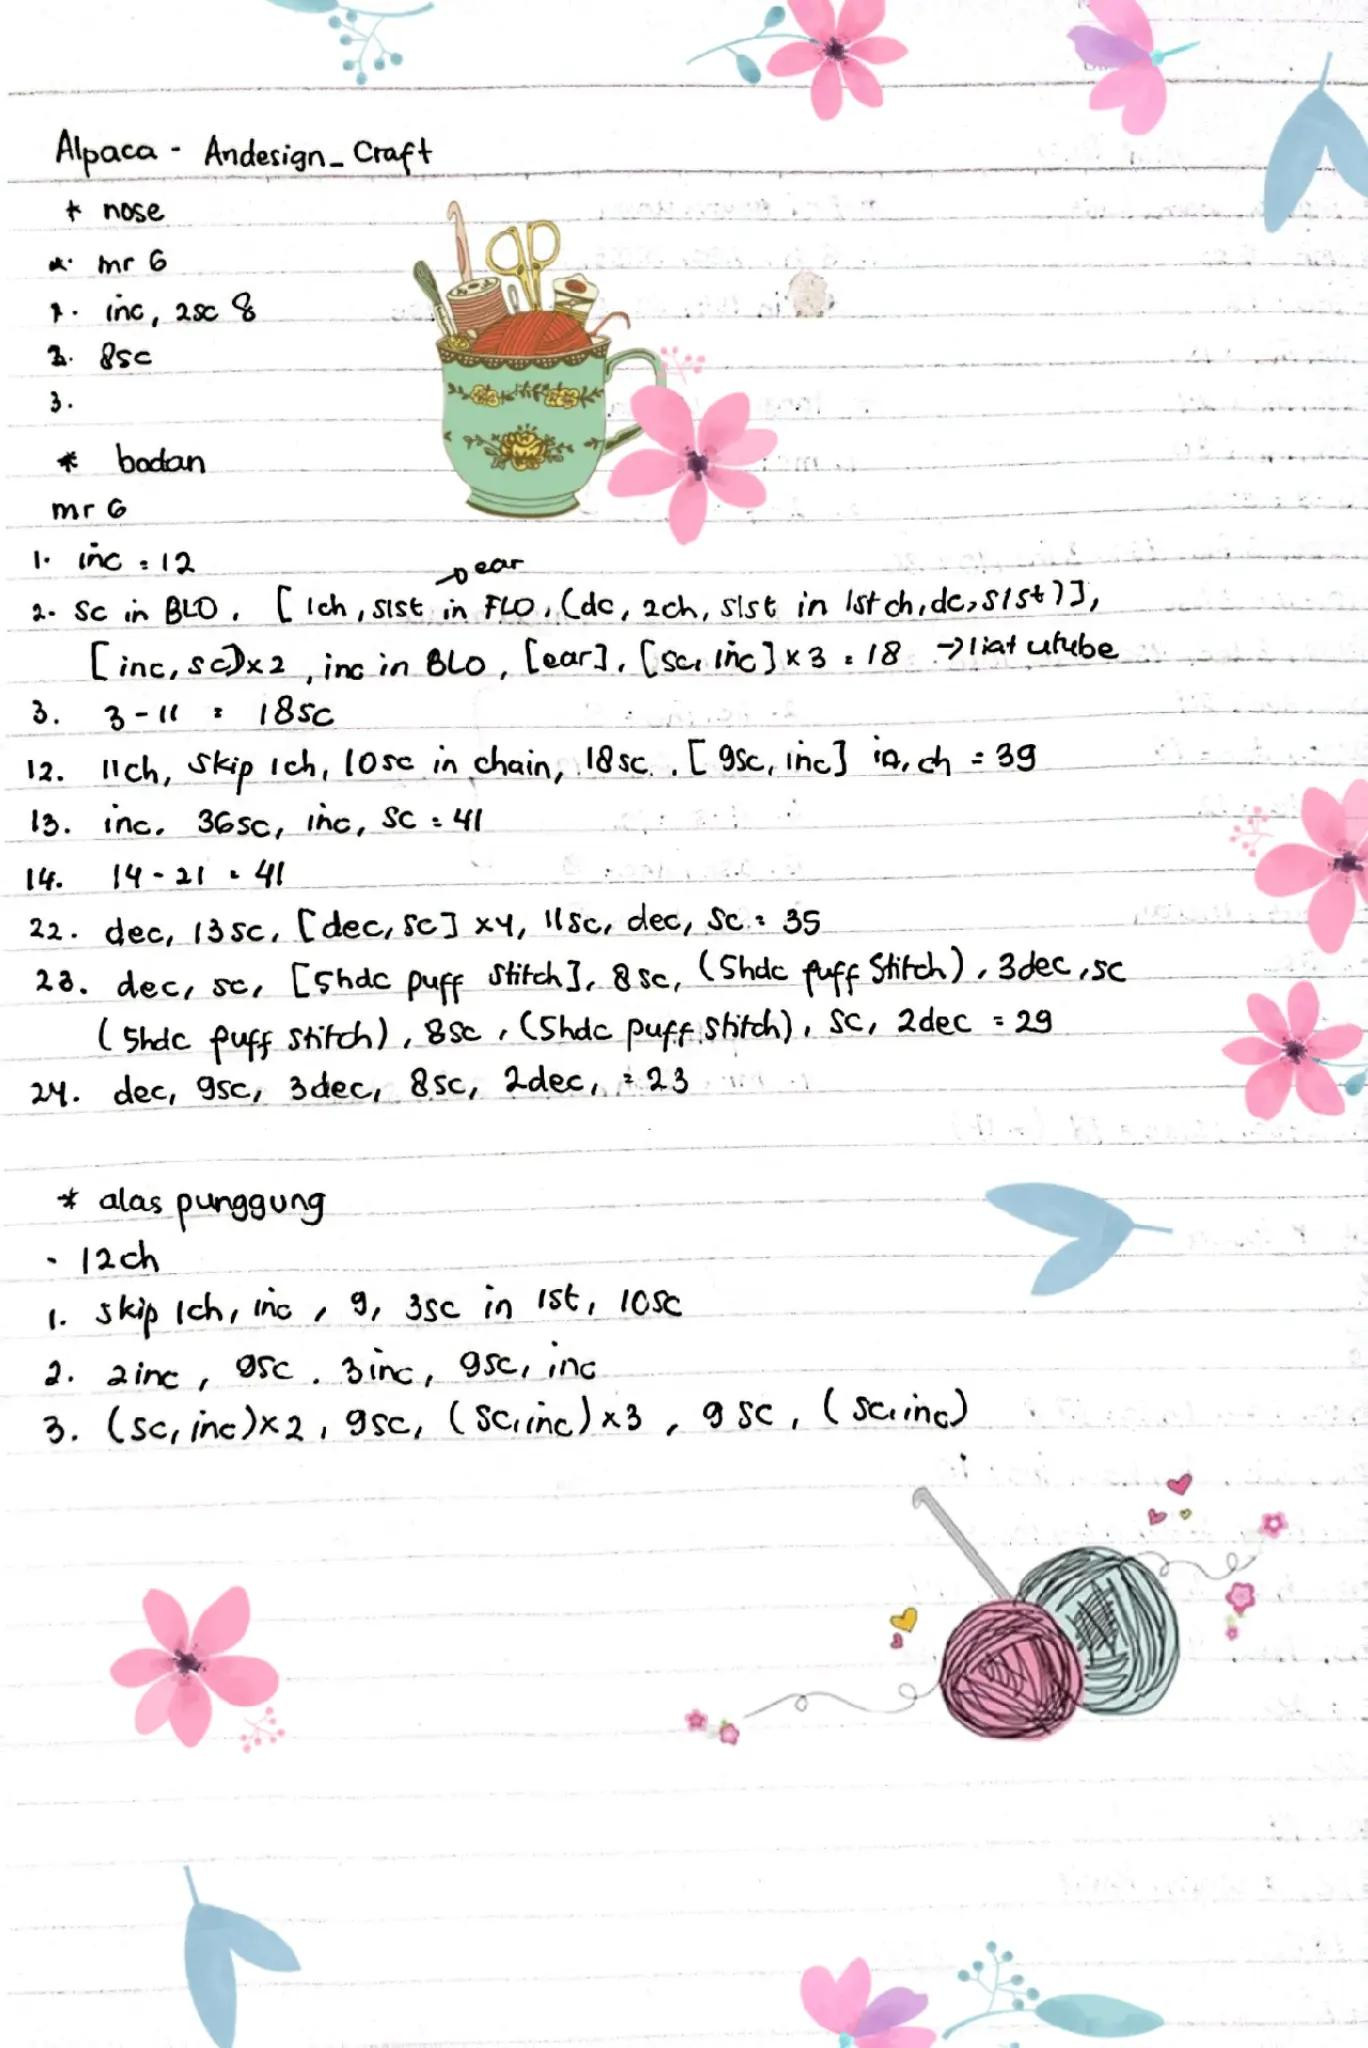 Alpaca - Andesign_Craft
* nose
mr 6
1. inc, 2sc 8
2. 8sc
3.
* badan
mr 6
1. inc = 12
→ ear
2. sc in BLO, [1ch, slst in FLO, (dc, 2ch, slst in 1st ch, dc, slst)],
[inc, sc)x2, inc in BLO, [ear], [sc, inc] x3 = 18 → liat utube
3. 3-11 = 18sc
12. 11ch, skip 1ch, 10sc in chain, 18sc, [9sc, inc] in, ch = 39
13. inc, 36sc, inc, sc = 41
14. 14-21 = 41
22. dec, 13sc, [dec, sc] x4, 11sc, dec, sc = 35
23. dec, sc, [5hdc puff stitch], 8sc, (5hdc puff stitch), 3dec, sc
(5hdc puff stitch), 8sc, (5hdc puff stitch), sc, 2dec = 29
24. dec, 9sc, 3dec, 8sc, 2dec, = 23
* alas punggung
- 12ch
1. skip 1ch, inc, 9, 3sc in 1st, 10sc
2. 2inc, 9sc. 3inc, 9sc, inc
3. (sc, inc)x2, 9sc, (sc, inc)x3, 9sc, (sc, inc)